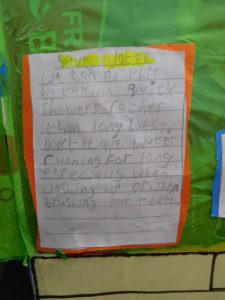 save water
we can do this
by taking quick
showers rather
than long baths,
Don't leave water
running for long
especially when
washing up or when
brushing our teeth.
FR